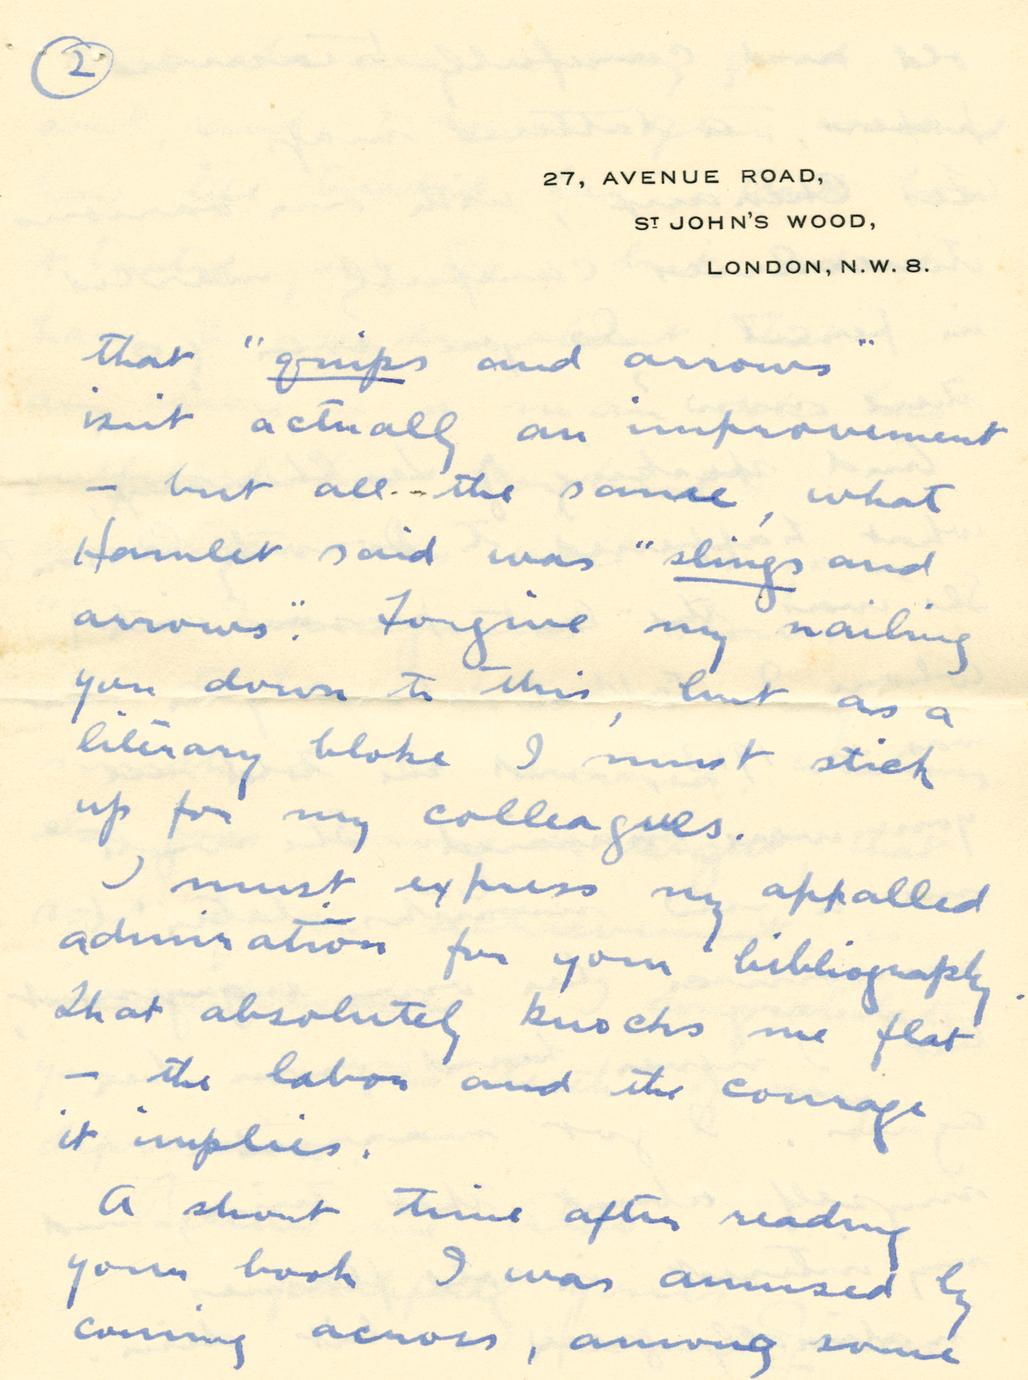 2
27, AVENUE ROAD,
ST JOHN'S WOOD,
LONDON, N.W. 8.
that "quips and arrows"
isn't actually an improvement
— but all the same, what
Hamlet said was "slings and
arrows". Forgive my nailing
you down to this, but as a
literary bloke I must stick
up for my colleagues.
I must express my appalled
admiration for your bibliography.
That absolutely knocks me flat
— the labor and the courage
it implies.
A short time after reading
your book I was amused by
coming across, among some